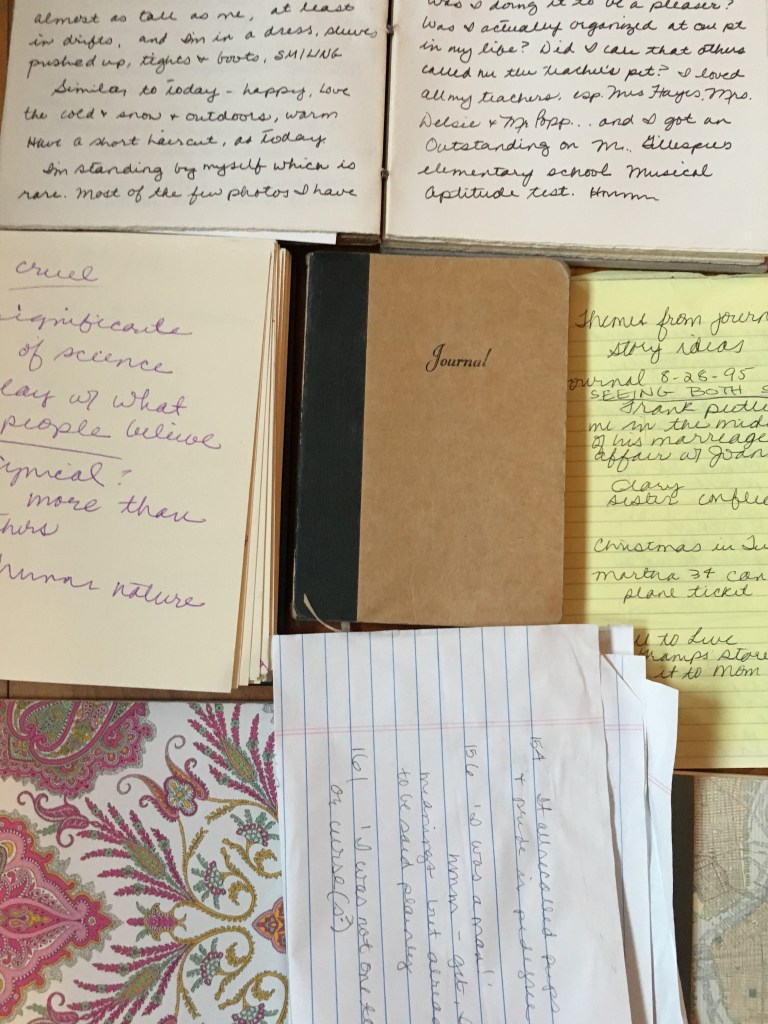 almost as tall as me, at least
in drifts, and I'm in a dress, sleeves
pushed up, tights & boots, SMILING
Similar to Today - happy, love
the cold & snow & outdoors, warm
Have a short haircut, as Today.
I'm standing by myself which is
rare. Most of the few photos I have
Was I doing it to be a pleaser?
Was I actually organized at one pt
in my life? Did I care that others
called me the teacher's pet? I loved
all my teachers, esp. Mrs Hayes, Mrs.
Delsie & Mr Popp... and I got an
Outstanding on M.. Gillespie's
elementary school Musical
Aptitude test. Hmmm
cruel
significante
of science
lay w what
people believe
cynical?
more than
thers
human nature
Journal
Themes from journ
story ideas
ournal 8-28-95
SEEING BOTH S
Frank putti
me in the midd
of his marriage
affair w Joan
Clary
sister conflic
Christmas in Tu
martha 34 can
plane ticket
u to Live
ramps store
it to Mom
154 It all called pups
& pride is pedigree
156 'I was a man!'
hmm - get.
manings but alrea
to be said plainly
161 'I was not one to
or curse(s?)